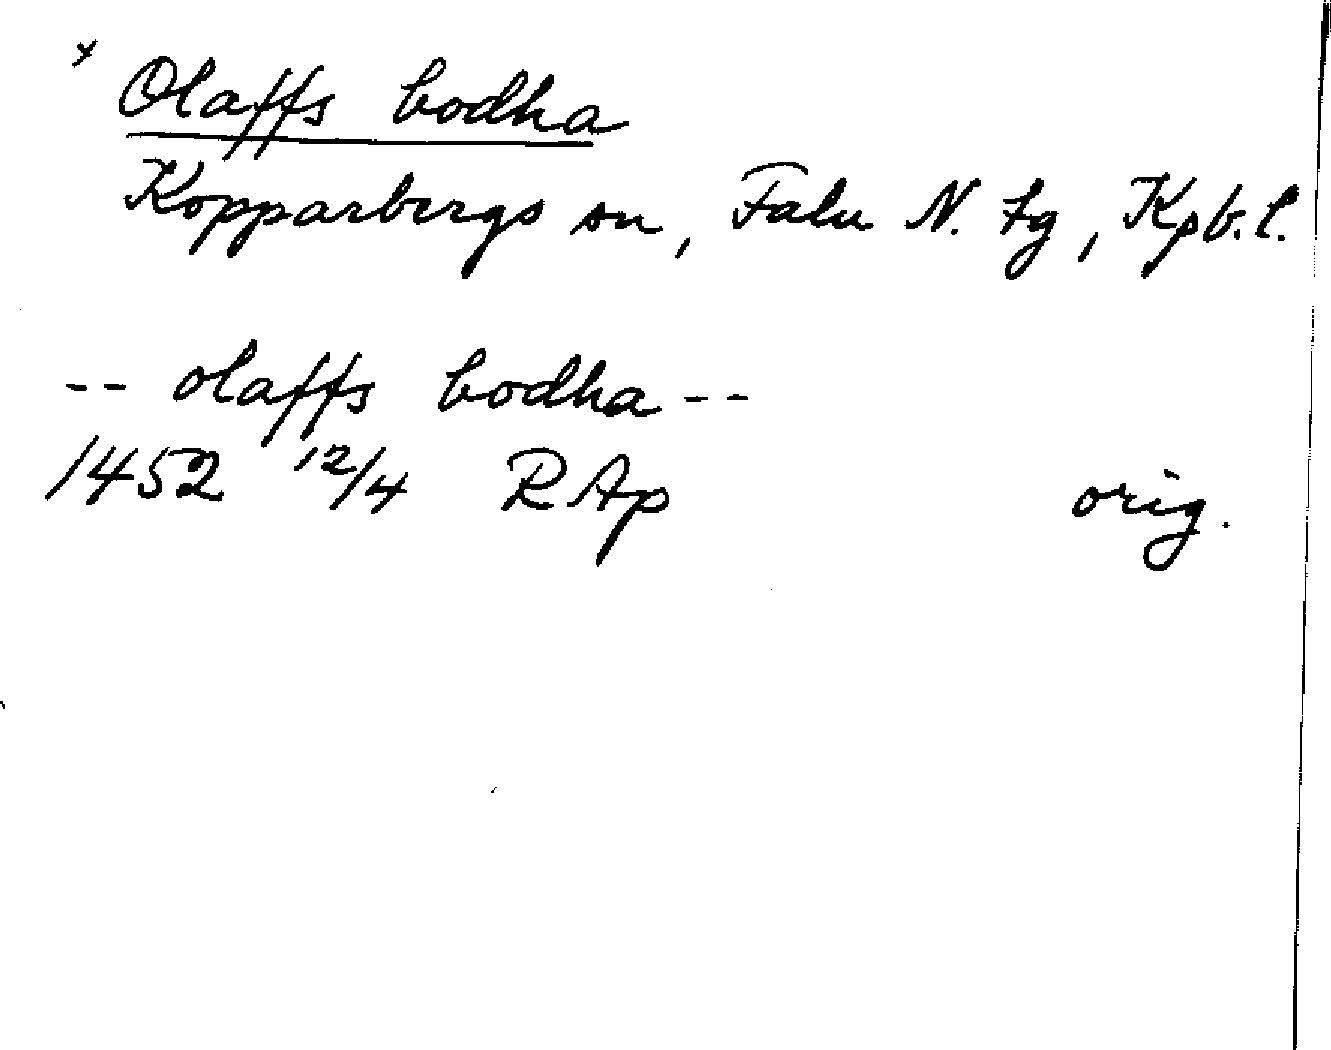 x Olaffs bodha
Kopparbergs sn, Falu N. tg, Kpb.l.
-- olaffs bodha --
1452 12/4 RAp orig.